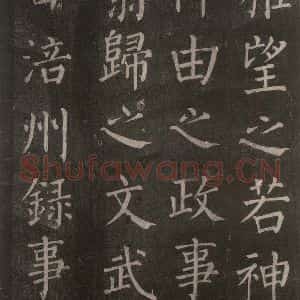 望之若神
仲由之政事
翁歸之文武
涪州録事
Shufawang.CN